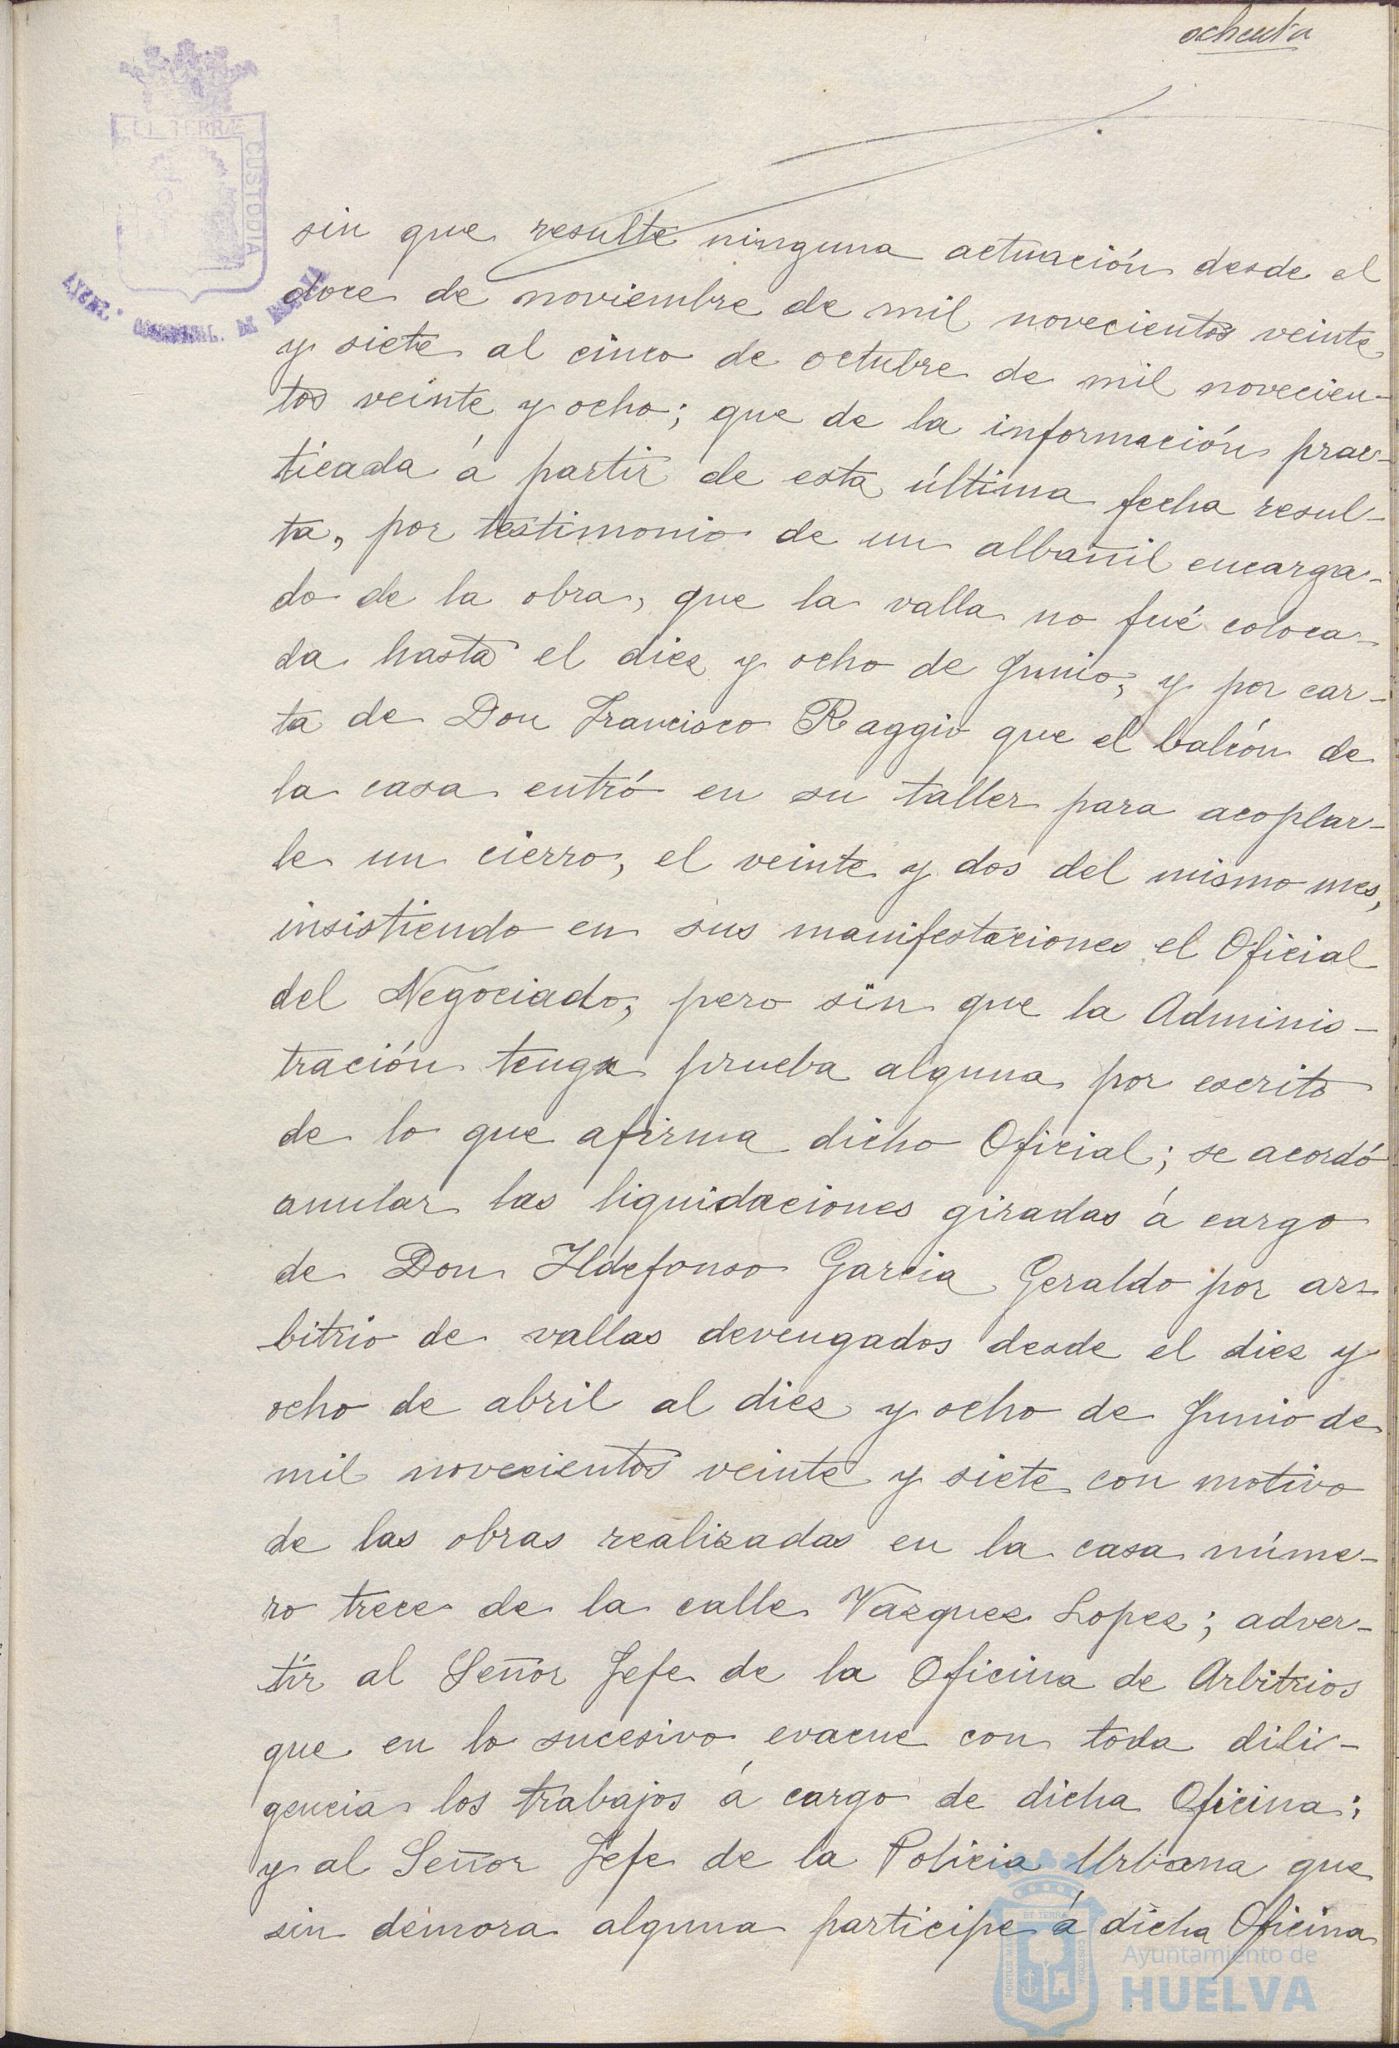 ochenta
ET TERRÆ
CUSTODIA
AYUNT. DE
sin que resulte ninguna actuación desde el
doce de noviembre de mil novecientos veinte
y siete al cinco de octubre de mil novecien-
tos veinte y ocho; que de la información prac-
ticada á partir de esta última fecha resul-
ta, por testimonio de un albañil encarga-
do de la obra, que la valla no fué coloca-
da hasta el diez y ocho de Junio, y por car-
ta de Don Francisco Raggio que el balcón de
la casa entró en su taller para acoplar-
le un cierro, el veinte y dos del mismo mes,
insistiendo en sus manifestaciones el Oficial
del Negociado, pero sin que la Adminis-
tración tenga prueba alguna por escrito
de lo que afirma dicho Oficial; se acordó
anular las liquidaciones giradas á cargo
de Don Ildefonso Garcia Geraldo por ar-
bitrio de vallas devengados desde el diez y
ocho de abril al diez y ocho de Junio de
mil novecientos veinte y siete con motivo
de las obras realizadas en la casa núme-
ro trece de la calle Vazquez Lopez; adver-
tir al Señor Jefe de la Oficina de Arbitrios
que en lo sucesivo evacue con toda dili-
gencia los trabajos á cargo de dicha Oficina;
y al Señor Jefe de la Policia Urbana que
sin demora alguna participe á dicha Oficina
Ayuntamiento de
HUELVA